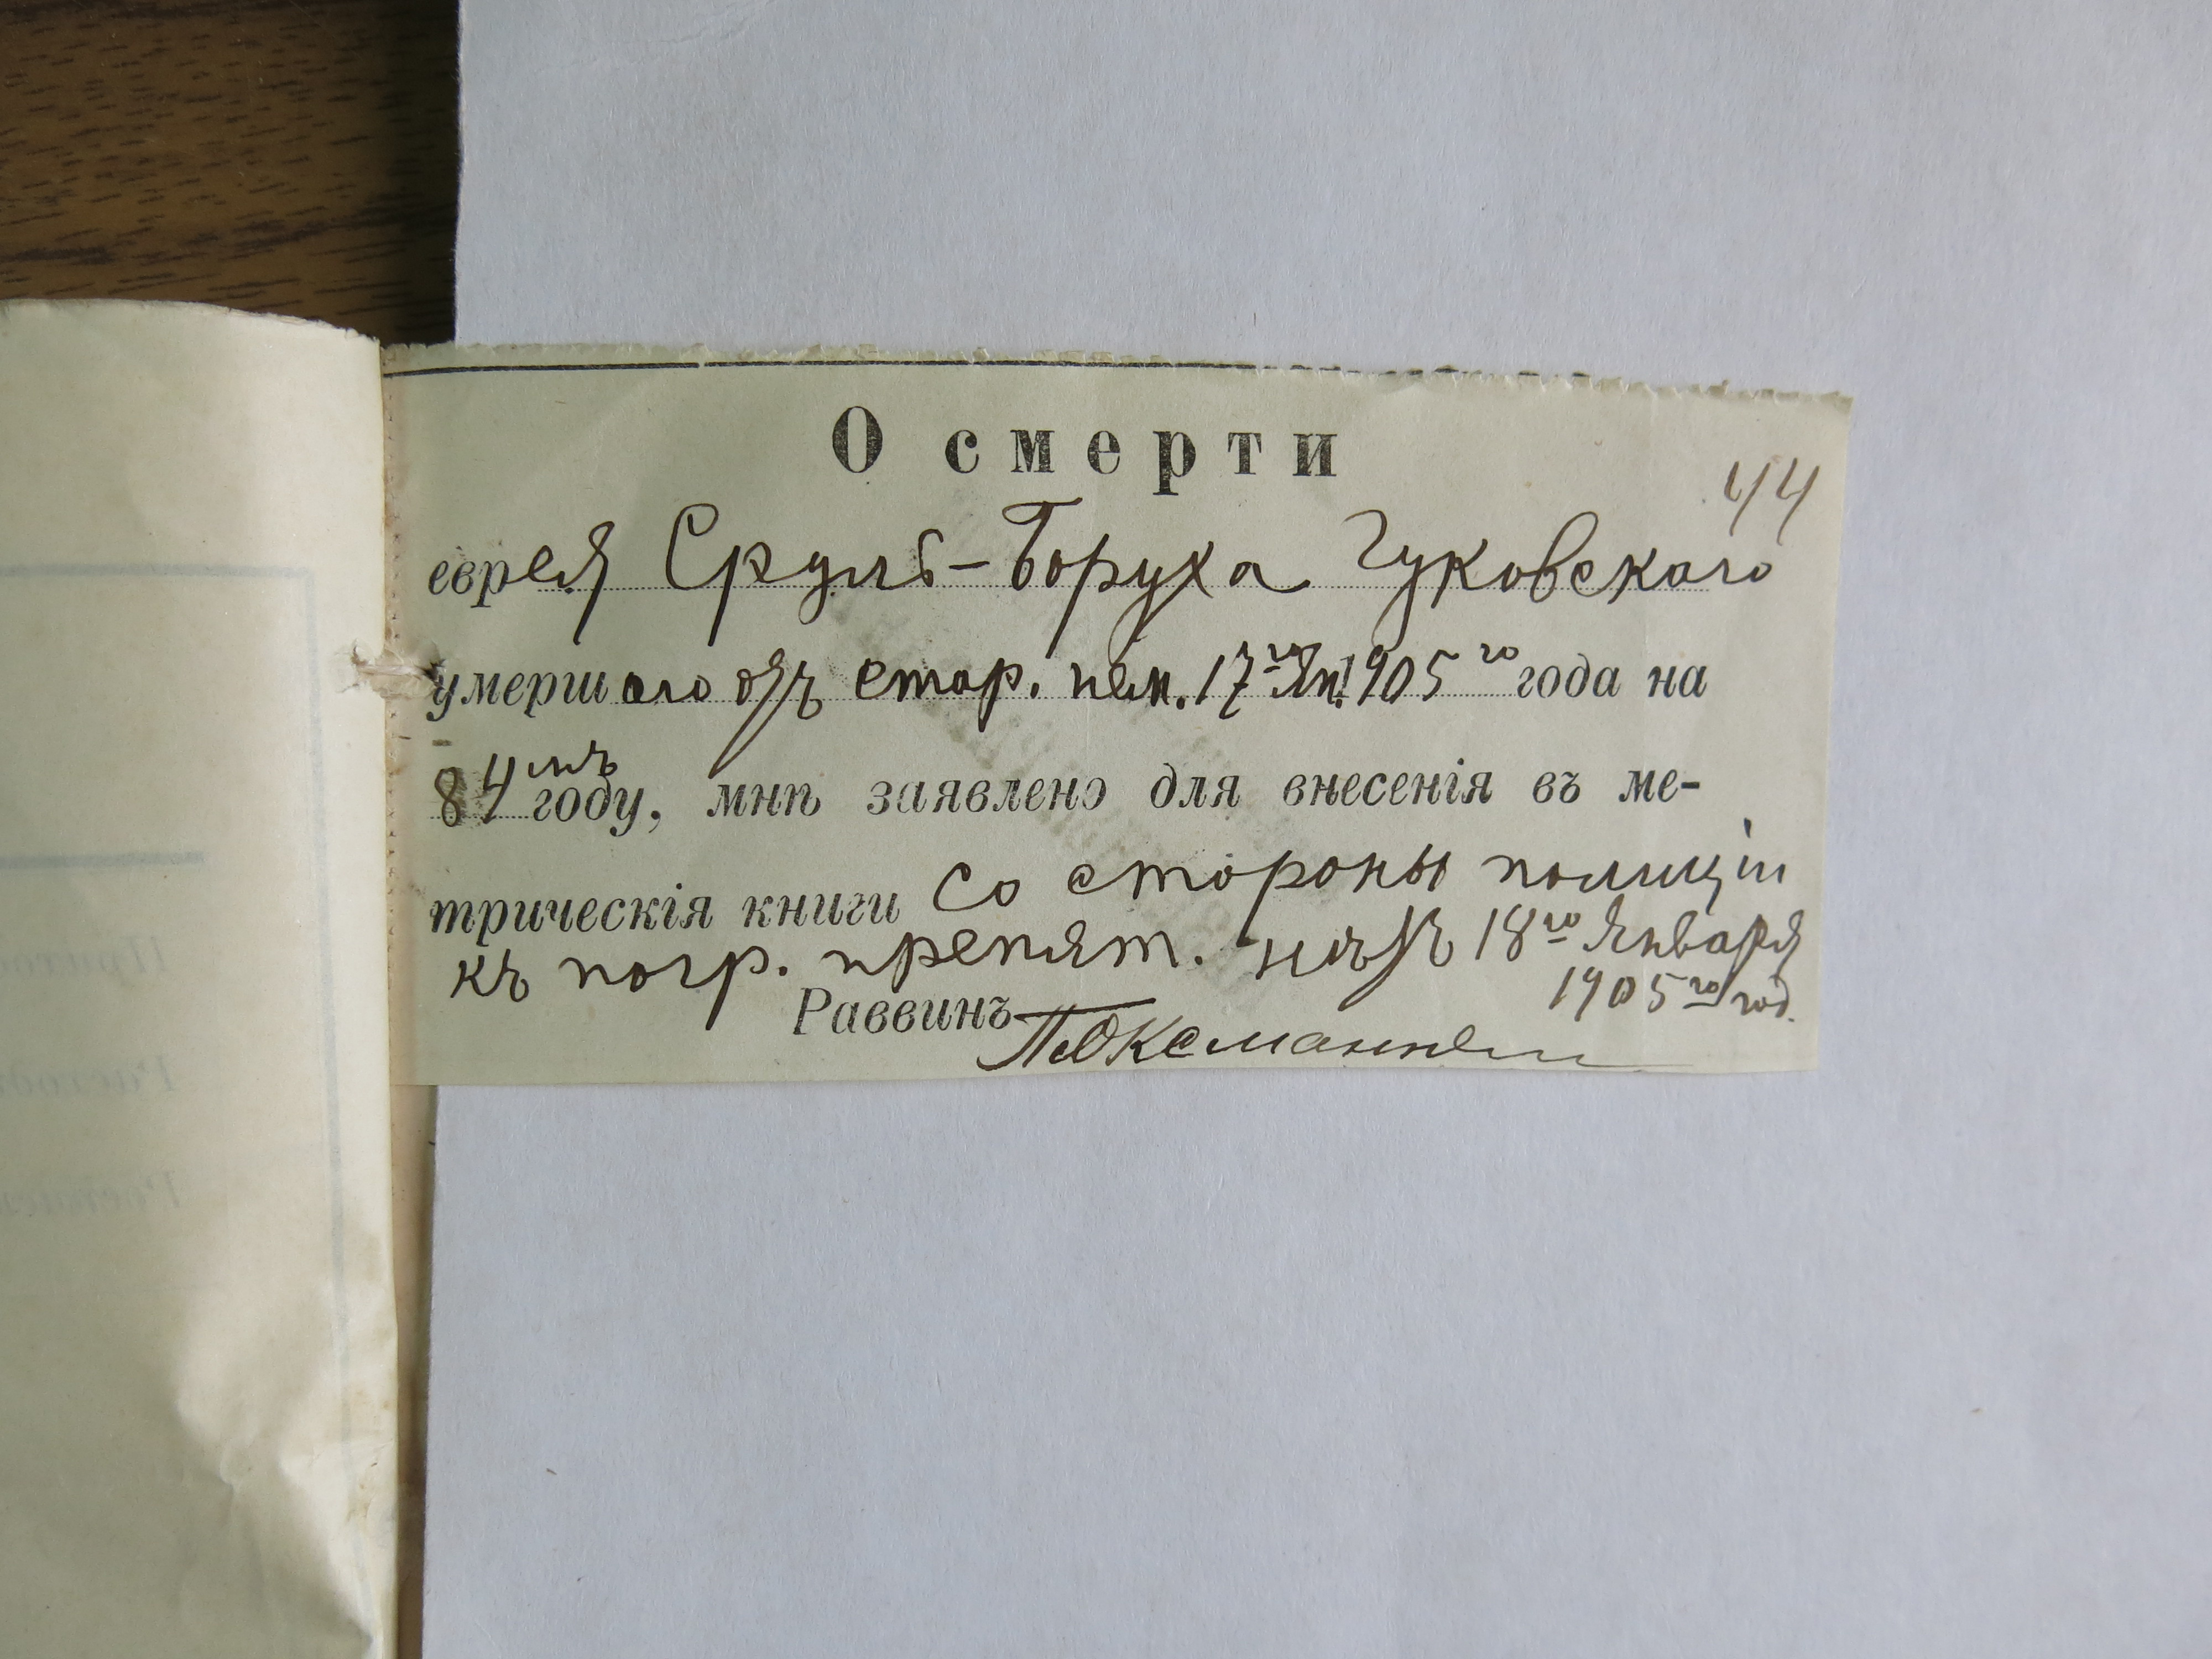 О смерти
44
еврея Сруль-Боруха Гуковскаго
умершаго отъ стар. нем. 17го Ян. 1905го года на
84мъ году, мнѣ заявлено для внесенія въ ме-
трическія книги со стороны полиціи
къ погр. препят. нѣтъ 18го Января
1905го год.
Раввинъ